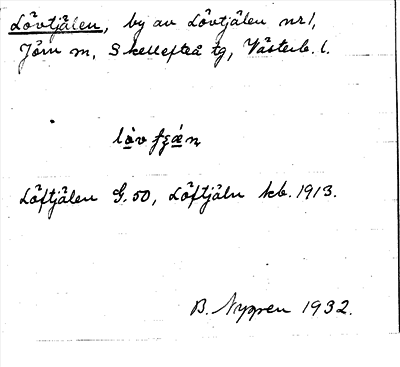 Lövtjälen, by av Lövtjälen nr 1,
Jörn m, Skellefteå tg, Västerb. l.
Löftjälen G. 50, Löftjäln kb. 1913.
B. Nygren 1932.